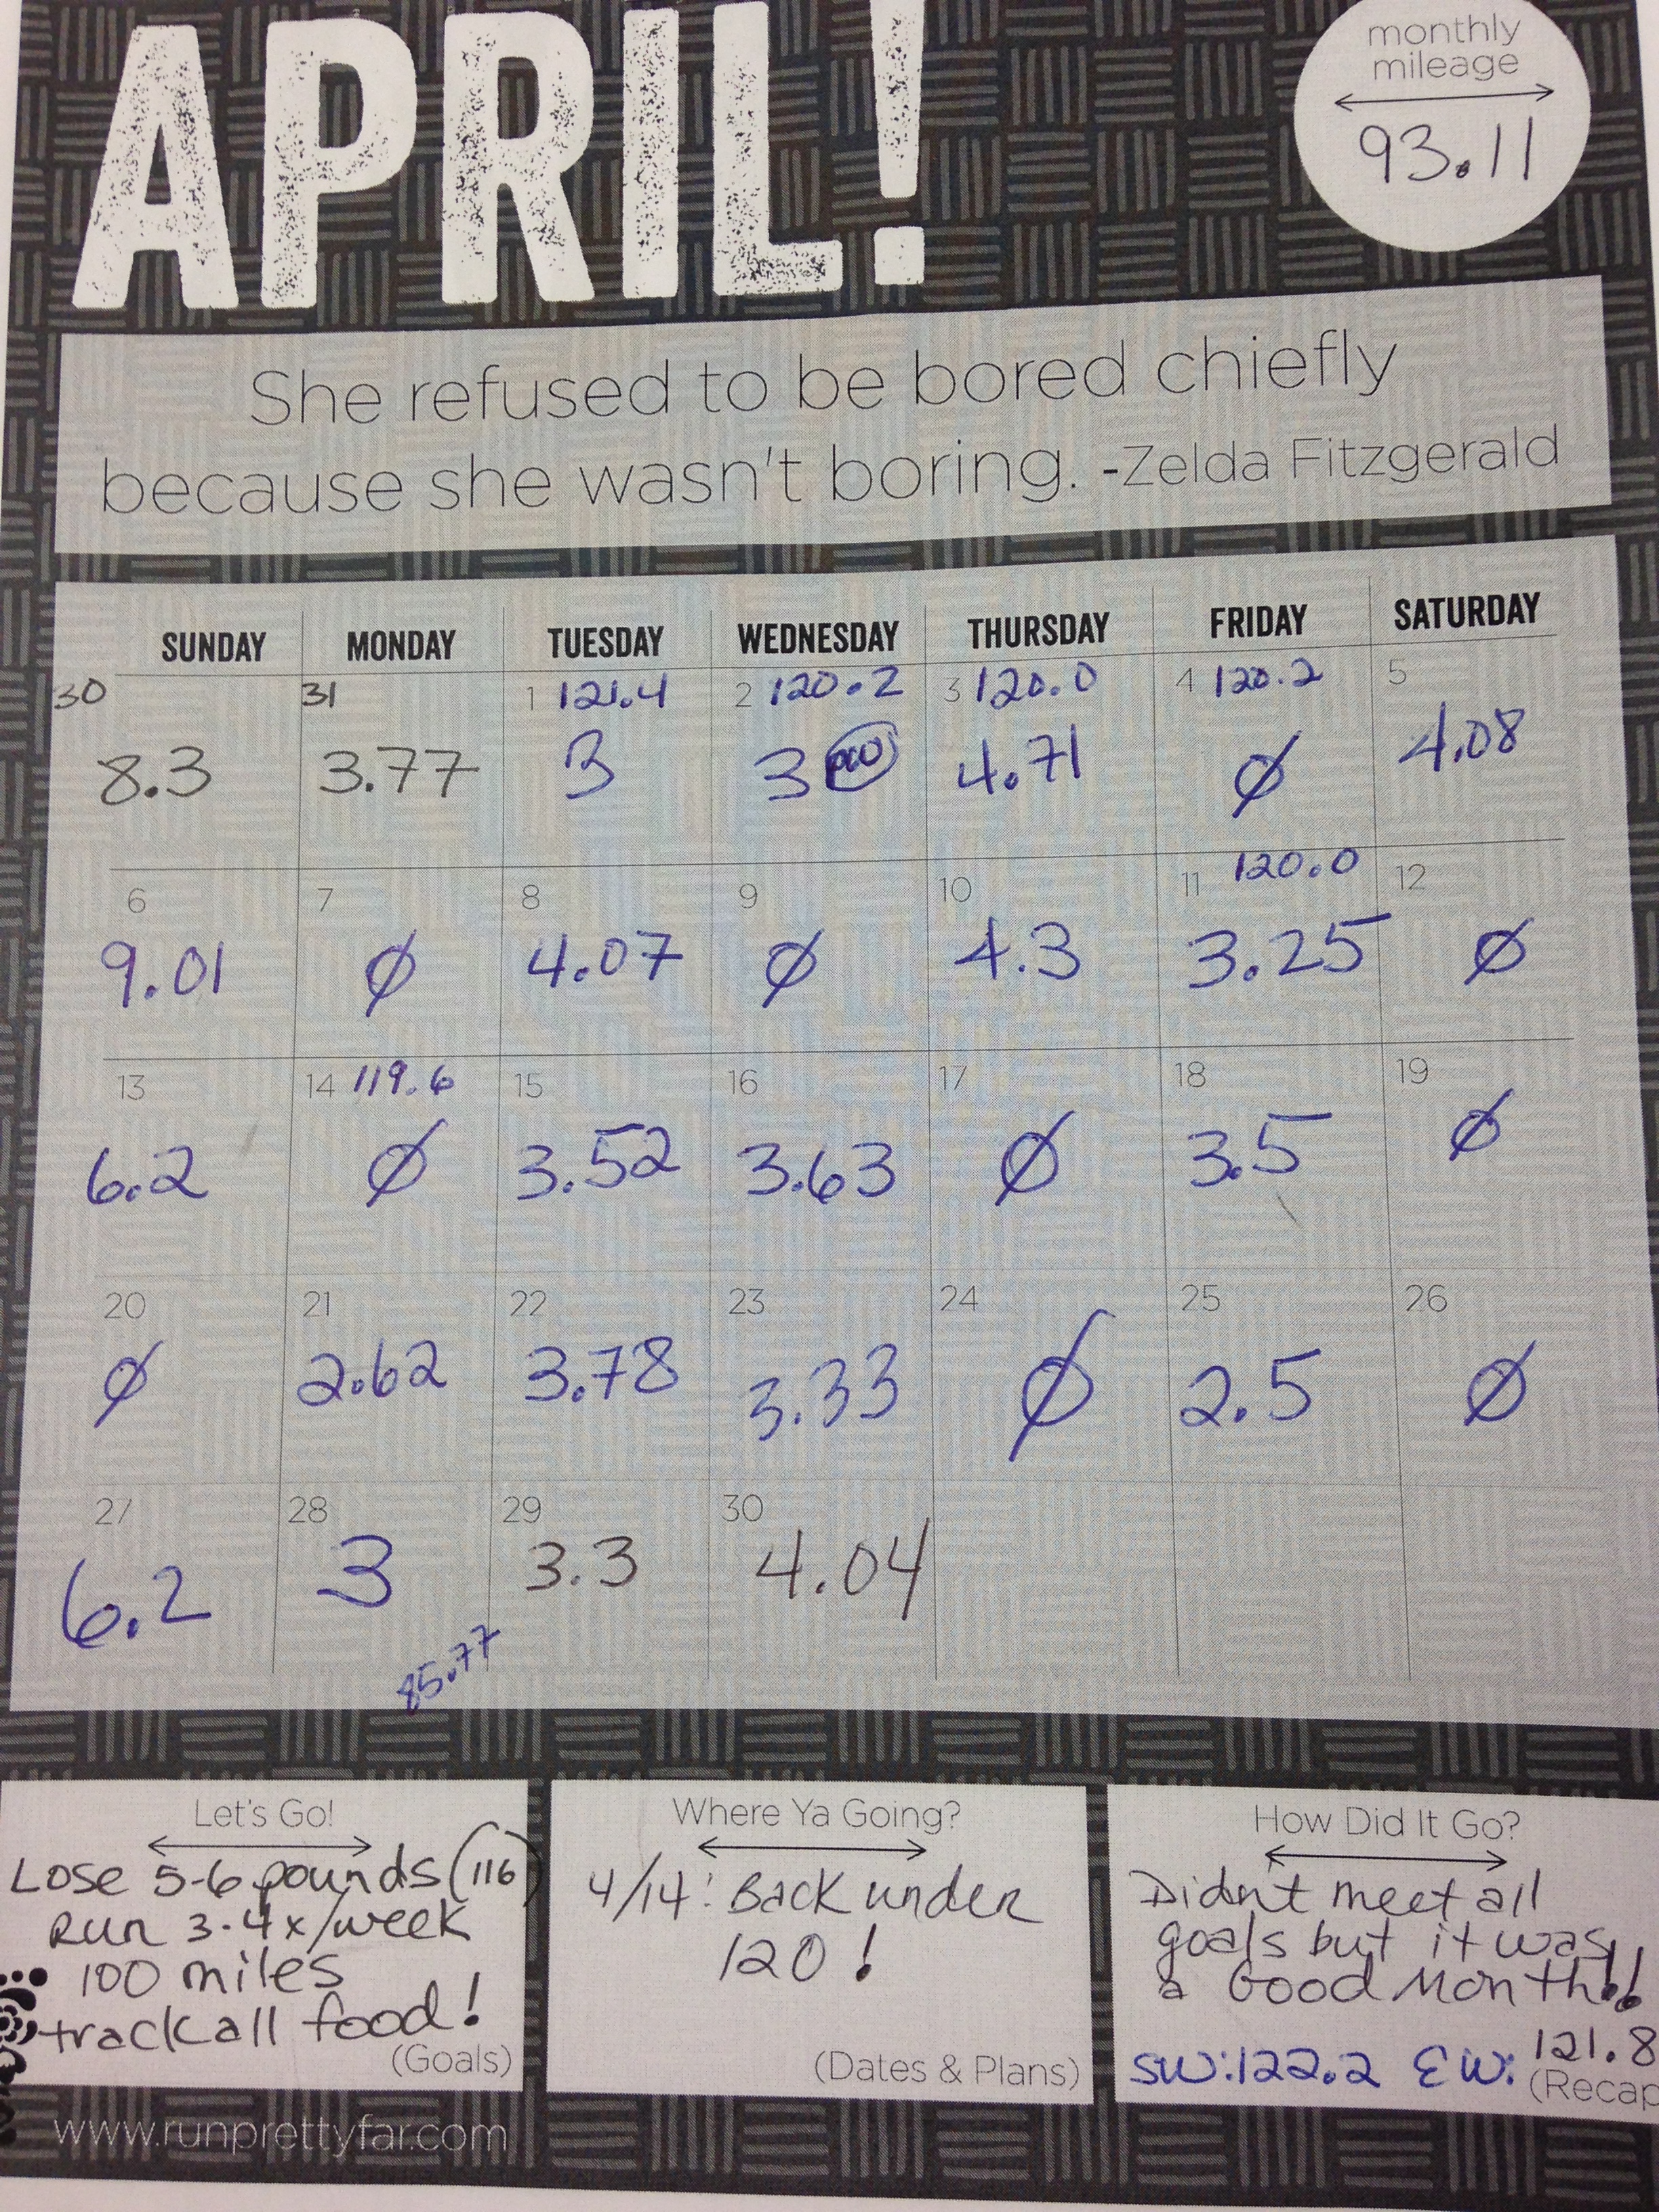 APRIL!
monthly
mileage
93.11
She refused to be bored chiefly
because she wasn't boring. -Zelda Fitzgerald
SUNDAY MONDAY TUESDAY WEDNESDAY THURSDAY FRIDAY SATURDAY
30 31 1 121.4 2 120.2 3 120.0 4 120.2 5
8.3 3.77 3 3 4.71 Ø 4.08
6 7 8 9 10 11 120.0 12
9.01 Ø 4.07 Ø 4.3 3.25 Ø
13 14 119.6 15 16 17 18 19
6.2 Ø 3.52 3.63 Ø 3.5 Ø
20 21 22 23 24 25 26
Ø 2.62 3.78 3.33 Ø 2.5 Ø
27 28 29 30
6.2 3 3.3 4.04
85.77
Let's Go!
Lose 5-6 pounds (116)
Run 3-4x/week
100 miles
track all food!
(Goals)
Where Ya Going?
4/14: Back under
120!
(Dates & Plans)
How Did It Go?
Didn't meet all
goals but it was
a Good Month!!
SW:122.2 EW: 121.8
(Recap
www.runprettyfar.com